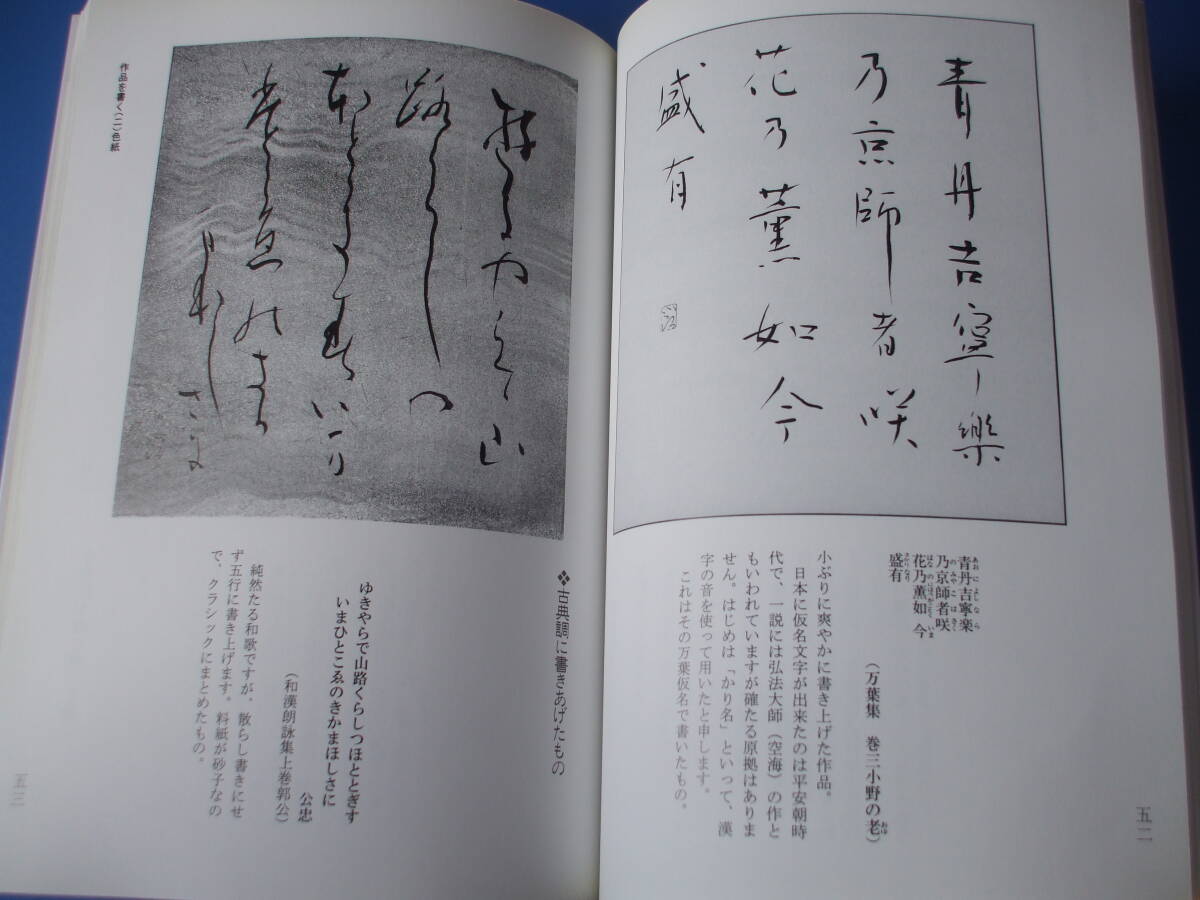 青丹吉寧樂
乃京師者咲
花乃薫如今
盛有
青丹吉寧楽
あおによしなら
乃京師者咲
のみやこはさく
花乃薫如今
はなのにほふごとくいま
盛有
さかりなり
(万葉集 巻三小野の老)
おゆ
小ぶりに爽やかに書き上げた作品。
日本に仮名文字が出来たのは平安朝時
代で、一説には弘法大師(空海)の作と
もいわれていますが確たる原拠はありま
せん。はじめは「かり名」といって、漢
字の音を使って用いたと申します。
これはその万葉仮名で書いたもの。
五二
❖古典調に書きあげたもの
ゆきやらで山路くらしつほととぎす
いまひとこゑのきかまほしさに
公忠
(和漢朗詠集上巻郭公)
純然たる和歌ですが、散らし書きにせ
ず五行に書き上げます。料紙が砂子なの
で、クラシックにまとめたもの。
作品を書く(二)色紙
五三